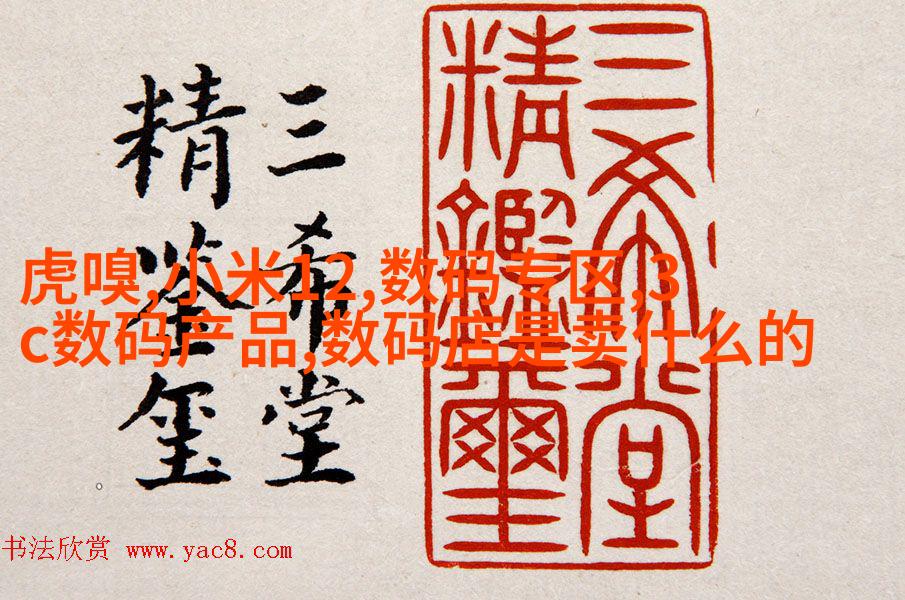 三希堂
精鉴玺
三希堂
精鑑璽
虎嗅,小米12,数码专区,3
c数码产品,数码店是卖什么的
书法欣赏 www.yac8.com